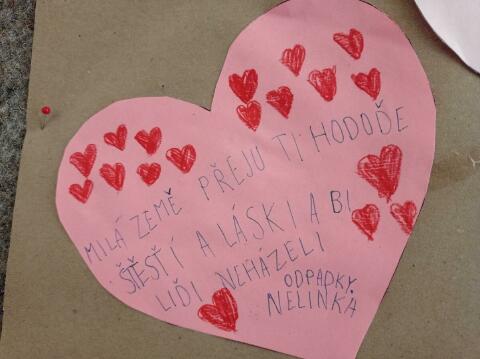 MILÁ ZEMĚ PŘEJU TI HODOĎE
ŠŤESŤÍ A LÁSKI A BI
LIĎI NEHÁZELI
ODPADKY.
NELINKA